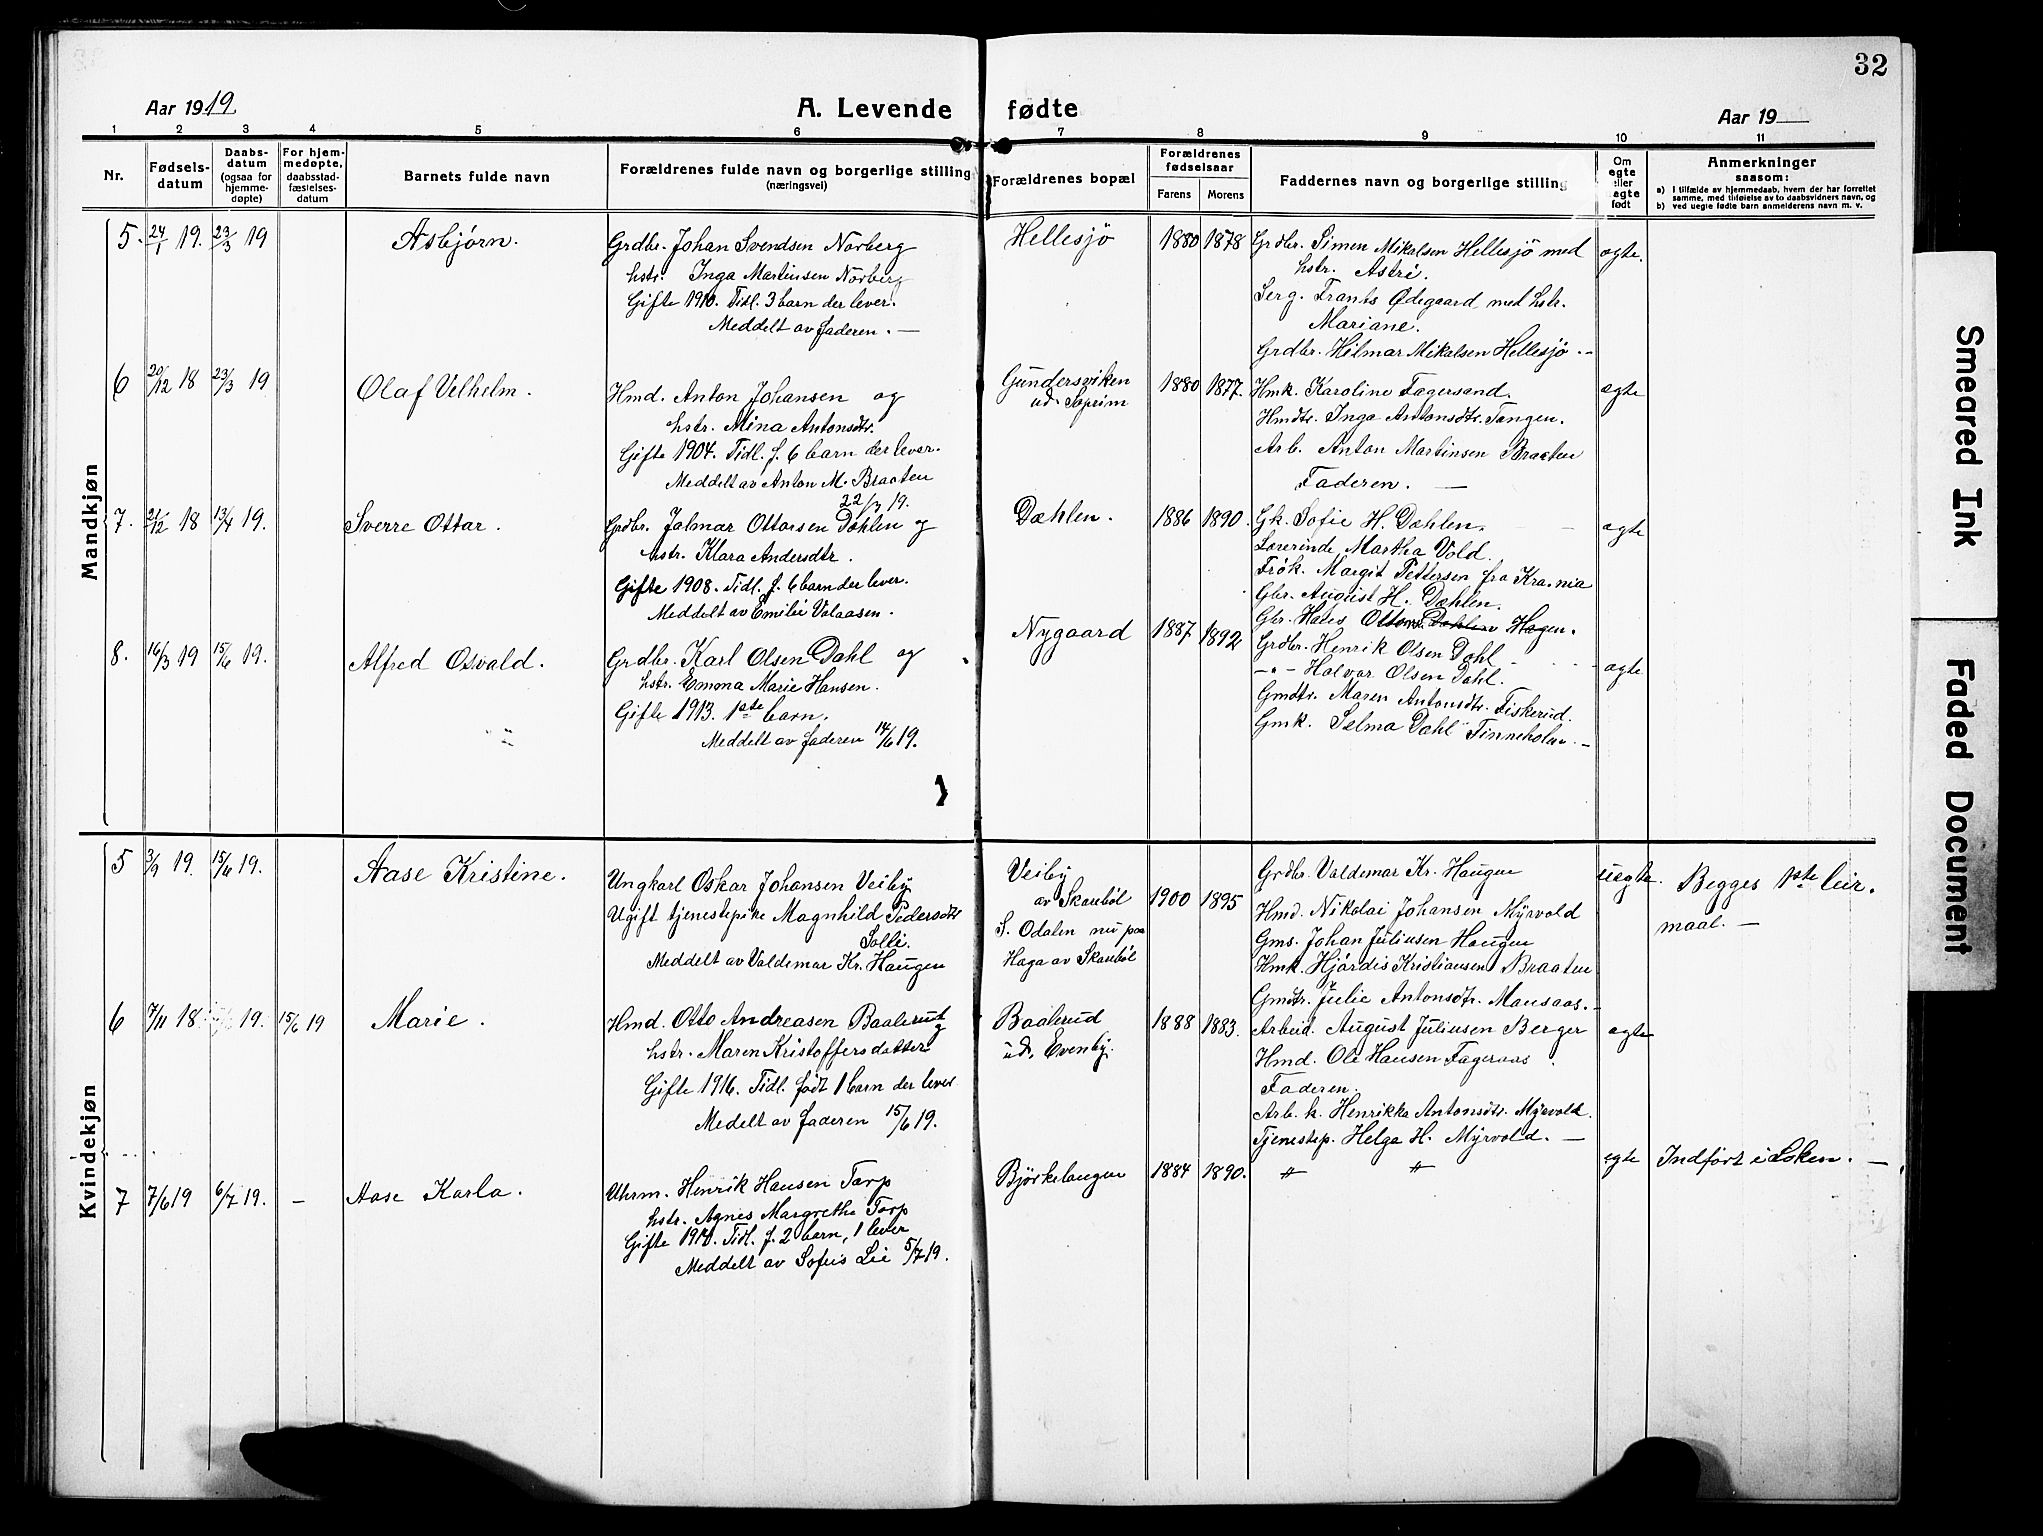 32
Aar 1919
A. Levende fødte
Aar 19
1 2 3 4 5 6 7 8 9 10 11
Nr.
Fødsels-
datum
Daabs-
datum
(ogsaa for
hjemme-
døpte)
For hjem-
medøpte,
daabsstad-
fæstelses-
datum
Barnets fulde navn
Forældrenes fulde navn og borgerlige stilling
(næringsvei)
Forældrenes bopæl
Forældrenes
fødselsaar
Farens Morens
Faddernes navn og borgerlige stilling
Om
egte
eller
uegte
født
Anmerkninger
saasom:
a) I tilfælde av hjemmedaab, hvem der har forrettet
samme, med tilføielse av to daabsvidners navn, og
b) ved uegte fødte barn anmelderens navn m. v.
Mandkjøn
5. 24/1 19. 23/3 19
Asbjørn.
Grdbr. Johan Svendsen Norberg
hstr. Inga Martinsen Norberg
Gifte 1910. Tidl. 3 barn der lever.
Meddelt av faderen. —
Hellesjö
1880 1878
Grdbr. Simen Mikalsen Hellesjö med
hstr. Astri.
Serg. Frants Ödegaard med hstr.
Mariane.
Grdbr. Hilmar Mikalsen Hellesjö. -
egte.
6 20/12 18 23/3 19
Olaf Vilhelm.
Hmd. Anton Johansen og
hstr. Mina Antonsdtr.
Gifte 1904. Tidl. f. 6 barn der lever.
Meddelt av Anton M. Braaten
22/3 19.
Gundersviken
ud.
1880 1877.
Hmk. Karoline Fagersand.
Hmdtr. Inga Antonsdtr. Tangen.
Arb. Anton Martinsen Braaten
Faderen. —
egte
7. 21/12 18 13/4 19.
Sverre Ottar.
Grdbr. Jalmar Ottarsen Dæhlen og
hstr. Klara Andersdtr.
Gifte 1908. Tidl. f. 6 barn der lever.
Meddelt av Emilie Valaasen.
Dæhlen.
1886 1890.
Gk. Sofie H. Dæhlen.
Lærerinde Martha Vold.
Frök. Margit Pettersen fra Kra.nia
Gbr. August H. Dæhlen.
Gbr. Hans Ottars. Dæhlen Hagen.
egte
8. 16/3 19 15/6 19.
Alfred Osvald.
Grdbr. Karl Olsen Dahl og
hstr. Emma Marie Hansen.
Gifte 1913. 1ste barn.
Meddelt av faderen 14/6 19.
Nygaard
1887 1892
Grdbr. Henrik Olsen Dahl
-"- Halvor Olsen Dahl.
Gmdtr. Maren Antonsdtr. Fiskerud.
Gmk. Selma Dahl Finneholm. -
egte
Kvindekjøn
5 3/9 19. 15/6 19.
Aase Kristine.
Ungkarl Oskar Johansen Veiby
Ugift tjenestepike Magnhild Pedersdtr
Solli.
Meddelt av Valdemar Kr. Haugen
Veiby
av Skarebøl
S. Odalen nu paa
Haga av Skarebøl
1900 1895
Grdbr. Valdemar Kr. Haugen
Hmd. Nikolai Johansen Myrvold
Gms. Johan Juliusen Haugen
Hmk. Hjördis Kristiansen Braaten
Gmdtr. Julie Antonsdtr. Mansaas. -
uegte.
Begges 1ste leir.
maal. —
6 7/11 18 19. 15/6 19
Marie.
Hmd. Otto Andreasen Baalerud
hstr. Maren Kristoffersdatter
Gifte 1916. Tidl. født 1 barn der lever
Medelt av faderen 15/6 19.
Baalerud
ud. Evenby.
1888 1883.
Arbeid. August Juliusen Berger
Hmd. Ole Hansen Fageraas
Faderen.
Arb. k. Henrikke Antonsdtr. Myrvold.
Tjenestep. Helga H. Myrvold. —
egte
7 7/6 19 6/7 19. —
Aase Karla.
Uhrm. Henrik Hansen Tarp
hstr. Agnes Margrethe Tarp
Gifte 1910. Tidl. f. 2 barn, 1 lever
Meddelt av Sofus Lie 5/7 19.
Björkelangen
1884 1890.
" "
egte
Indført i Løken. —
Smeared Ink
Faded Document